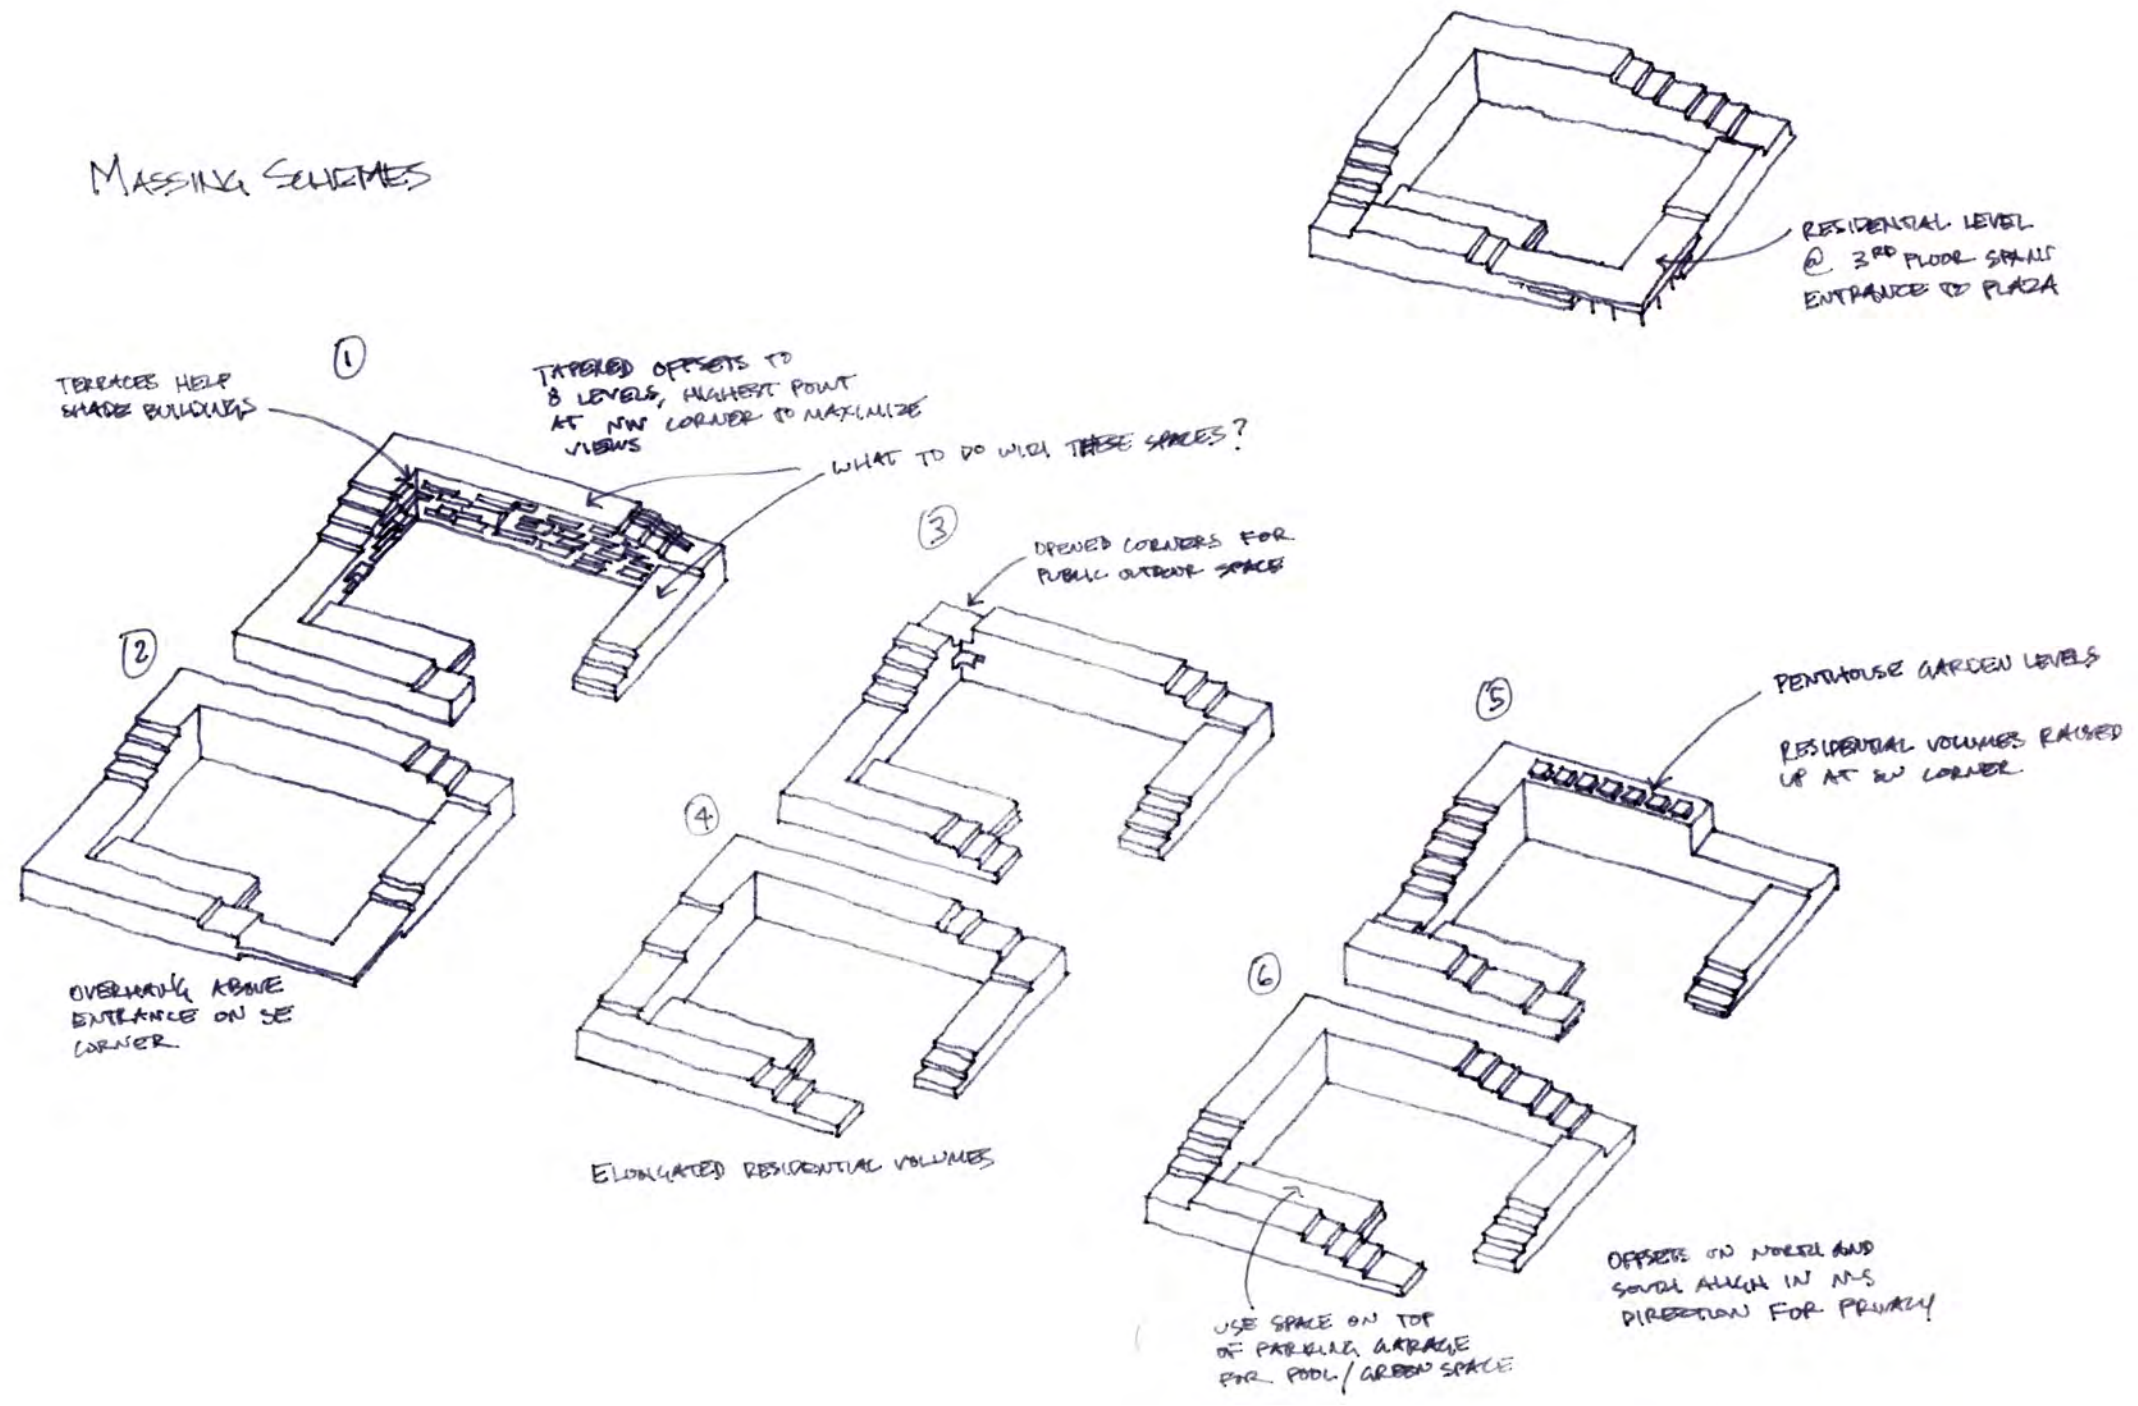 MASSING SCHEMES
RESIDENTIAL LEVEL
@ 3RD FLOOR SPANS
ENTRANCE TO PLAZA
1
TERRACES HELP
SHADE BUILDINGS
TAPERED OFFSETS TO
8 LEVELS, HIGHEST POINT
AT NW CORNER TO MAXIMIZE
VIEWS
WHAT TO DO WITH THESE SPACES?
2
OVERHANG ABOVE
ENTRANCE ON SE
CORNER
3
OPENED CORNERS FOR
PUBLIC OUTDOOR SPACE
4
ELONGATED RESIDENTIAL VOLUMES
5
PENTHOUSE GARDEN LEVELS
RESIDENTIAL VOLUMES RAISED
UP AT SW CORNER
6
USE SPACE ON TOP
OF PARKING GARAGE
FOR POOL/GREEN SPACE
OFFSETS ON NORTH AND
SOUTH ALIGN IN NS
DIRECTION FOR PRIVACY